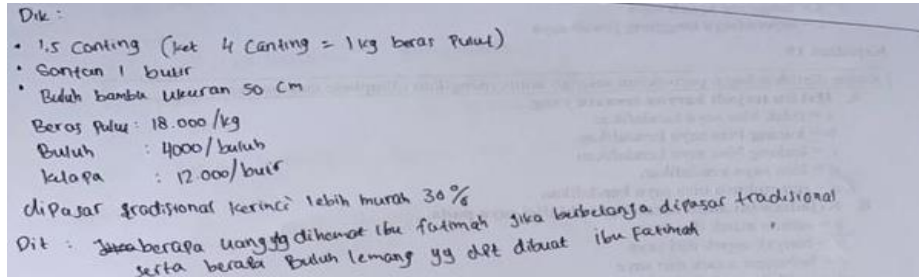 Dik :
• 1,5 Canting (ket 4 Canting = 1 kg beras Pulut)
• Santan 1 butir
• Buluh bambu ukuran 50 cm
Beras Pulut : 18.000/kg
Buluh : 4000/buluh
kelapa : 12.000/butir
dipasar tradisional kerinci lebih murah 30%
Dit : berapa uang yg dihemat ibu fatimah jika berbelanja dipasar tradisional
serta berapa Buluh lemang yg dpt dibuat ibu Fatimah